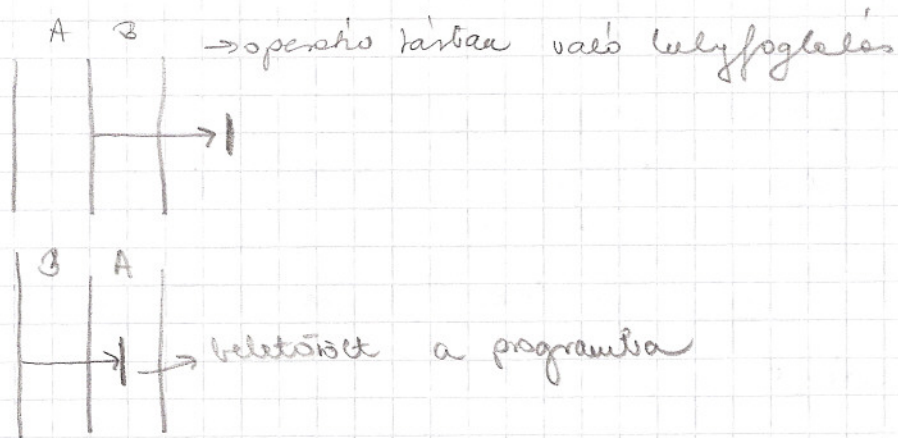 A B → operatív tárban való helyfoglalás
B A
→ beletörölt a programba